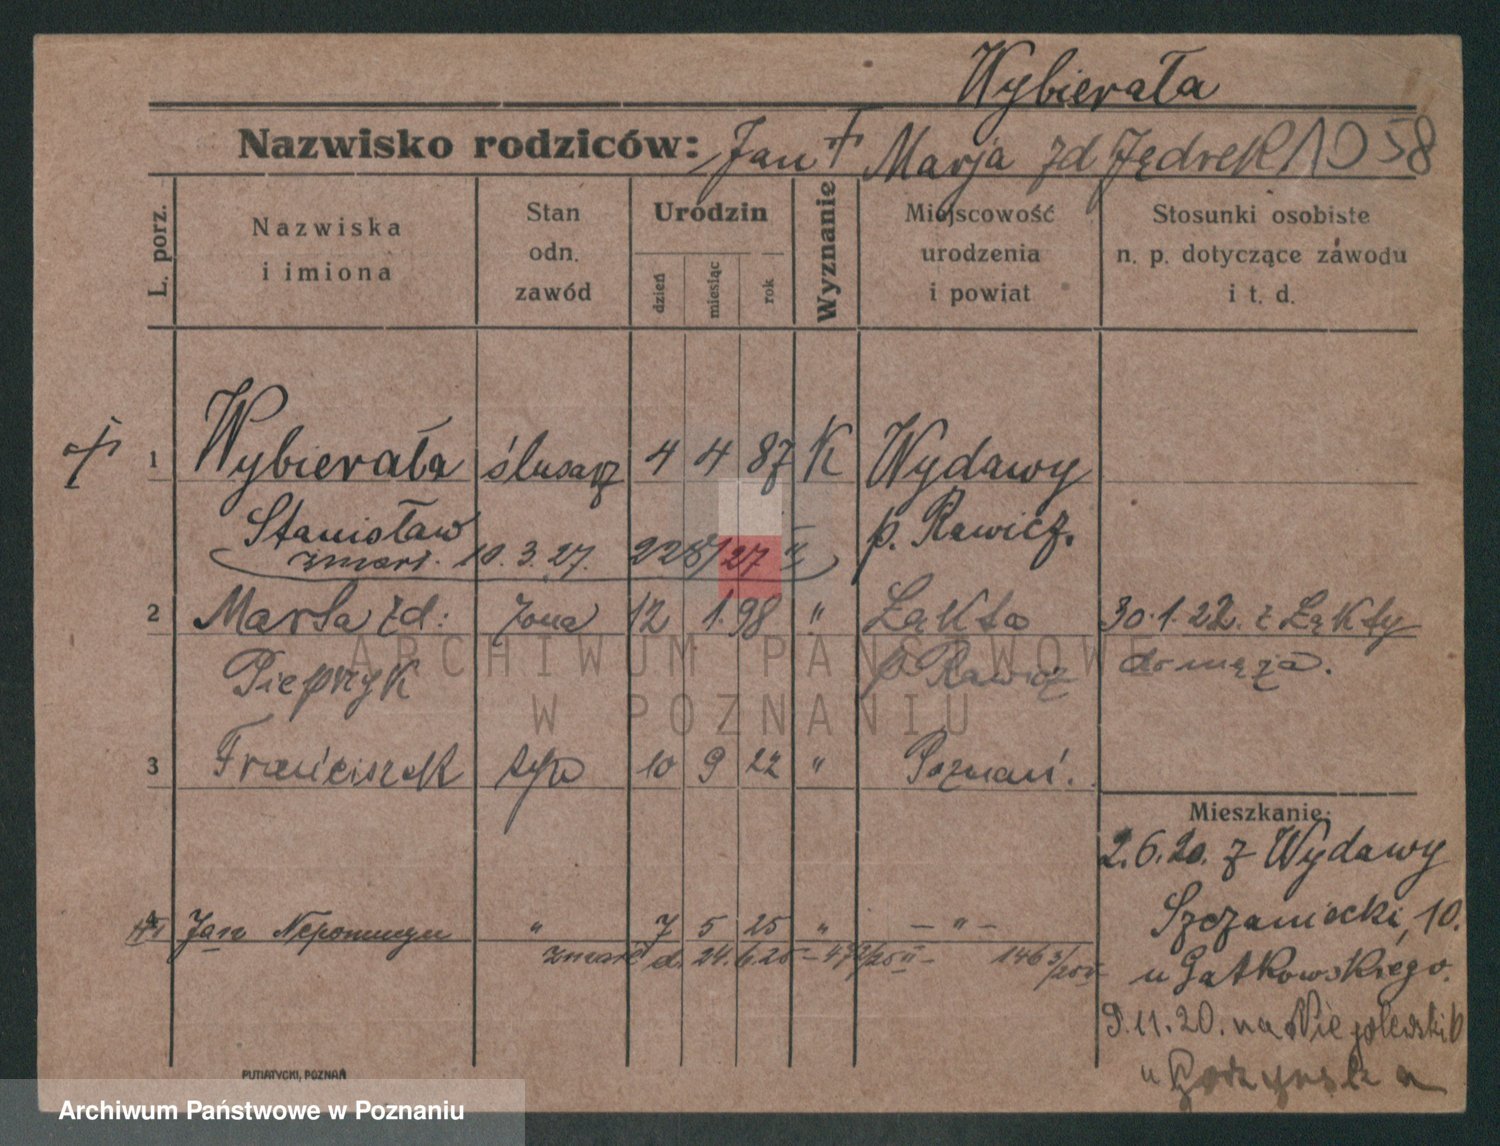 Wybierała
Nazwisko rodziców: Jan + Marja zd Jędrek 1058
L. porz.
Nazwiska
i imiona
Stan
odn.
zawód
Urodzin
dzień
miesiąc
rok
Wyznanie
Miejscowość
urodzenia
i powiat
Stosunki osobiste
n. p. dotyczące zawodu
i t. d.
1 Wybierała ślusarz 4 4 87 K Wydawy
Stanisław p. Rawicz.
zmarł. 10. 3. 27. 27 II
2 Marta zd: żona 12 1. 98 " Łąkta 30.1.22. z Łąkty
Pieprzyk p Rawicz do męża.
3 Franciszek syn 10 9 22 " Poznań.
Mieszkanie:
2.6.20. z Wydawy
Szczaniecki, 10.
u Gatkowskiego.
4 Jan Nepomucyn " 7 5 25 " — " —
zmarł d. 24. 6. 25
9.11.20. na
u
PUTIATYCKI, POZNAŃ
ARCHIWUM PAŃSTWOWE
W POZNANIU
Archiwum Państwowe w Poznaniu